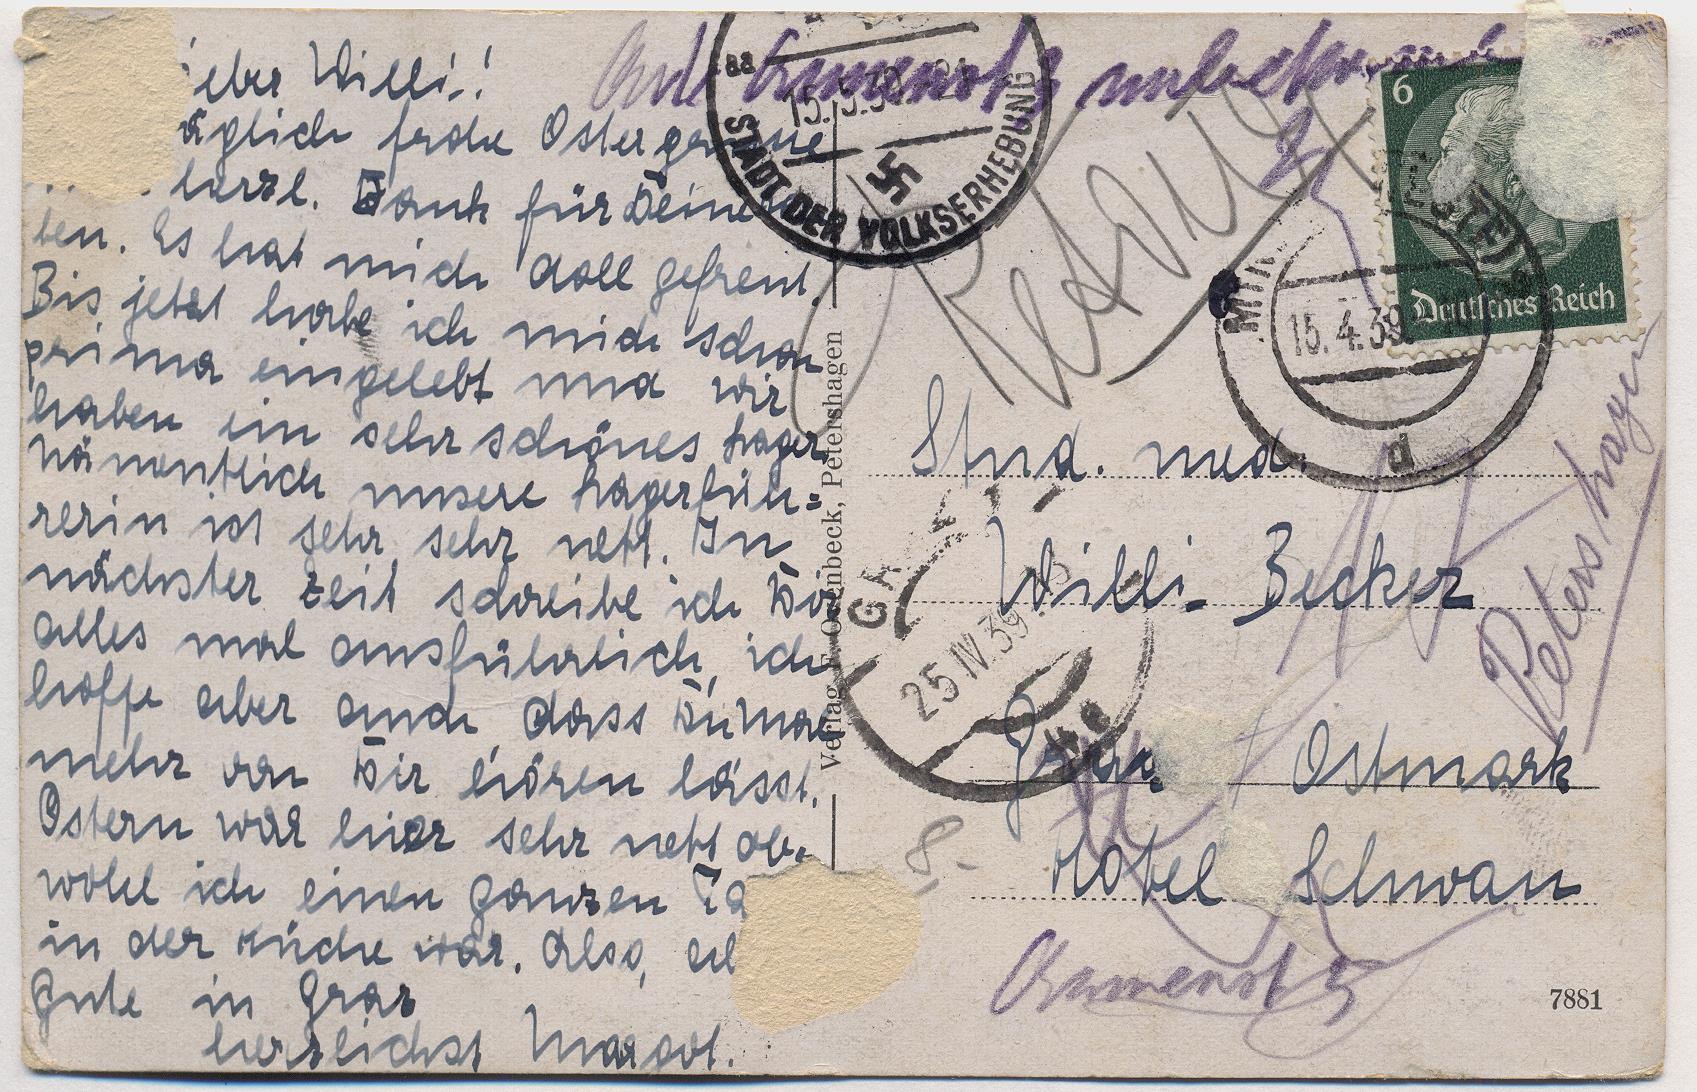 ieber Willi!
äglich frohe Ostergrüsse
herzl. Dank für Deine
ben. Es hat mich doll gefreut.
Bis jetzt habe ich mich schon
prima eingelebt und wir
haben ein sehr schönes Lager.
Nämentlich unsere Lagerfüh-
rerin ist sehr, sehr nett. In
nächster Zeit schreibe ich Dir
alles mal ausführlich, ich
hoffe aber auch, dass Du mal
mehr von Dir hören lässt.
Ostern war hier sehr nett ob-
wohl ich einen ganzen Ta
in der Küche war. Also, al
Gute in Graz
herzlichst Margot.
Verlag F. Ottenbeck, Petershagen
unbekannt
15.5.39
STADT DER VOLKSERHEBUNG
Retour
6
Deutsches Reich
MIN
15.4.39
d
Stud. med.
Willi Becker
Graz Ostmark
Hotel Schwan
25 IV 39
8.-
Petershagen
7881